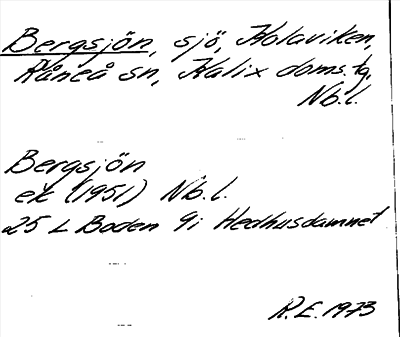 Bergsjön, sjö, Holaviken,
Råneå sn, Kalix doms.tg,
Nb.l.
Bergsjön
ek (1951) Nb.l.
25 L Boden 9i Hedhusdamnet
R.E. 1973